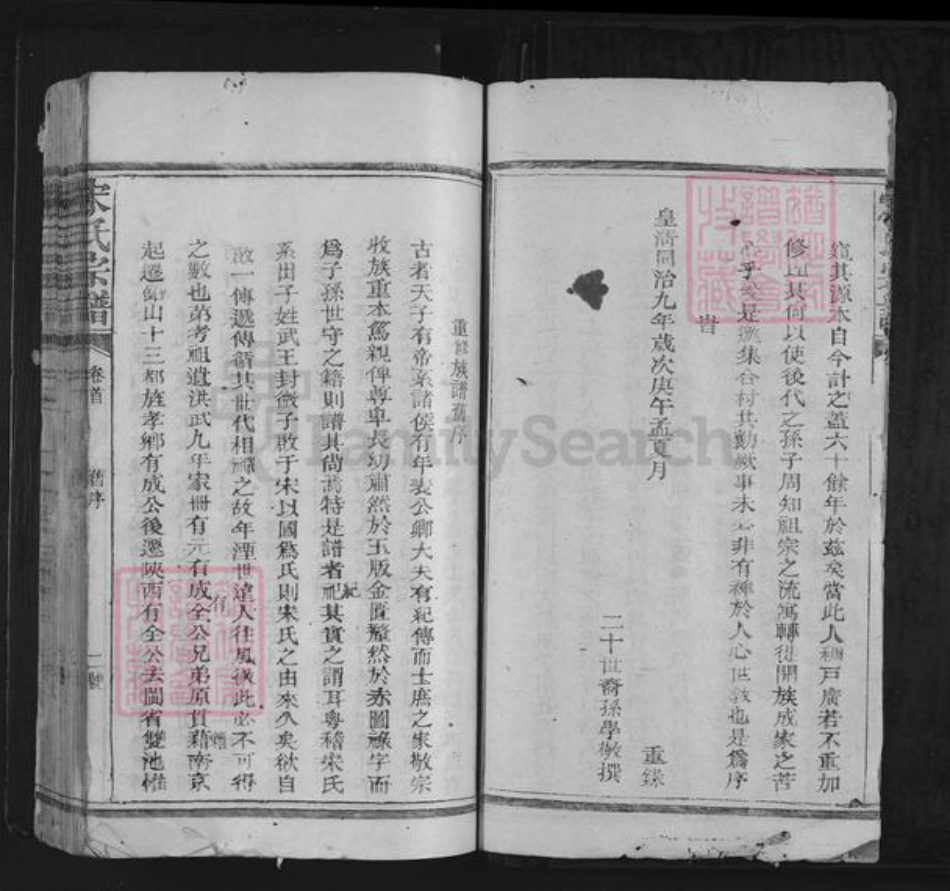 其源本自今計之蓋六十餘年於茲矣當此人稠戶廣若不重加
修且其何以使後代之孫子周知祖宗之流寓轉徙開族成家之苦
乎是邀集合村共勷厥事未必非有裨於人心世教也是為序
旹
皇清同治九年歲次庚午孟夏月
二十世裔孫學敬撰
重錄
重修族譜舊序
古者天子有帝系諸侯有年表公卿大夫有紀傳而士庶之家敬宗
收族重本篤親俾尊卑長幼肅然於玉版金匱鰲然於赤圖祿字而
為子孫世守之籍則譜其尚焉特是譜者紀其實之謂耳粵稽宋氏
系出子姓武王封微子啟于宋以國為氏則宋氏之由來久矣欲自
啟一傳遞傳籍其世代相禪之故年湮世遠人往風微此必不可得
之數也第考祖遺洪武九年家冊有元有成全公兄弟原貫藉南京
起遷山十三都旌孝鄉有成公後遷陝西有全公去閩省雙池惟
宋氏宗譜
卷首
舊序
FamilySearch